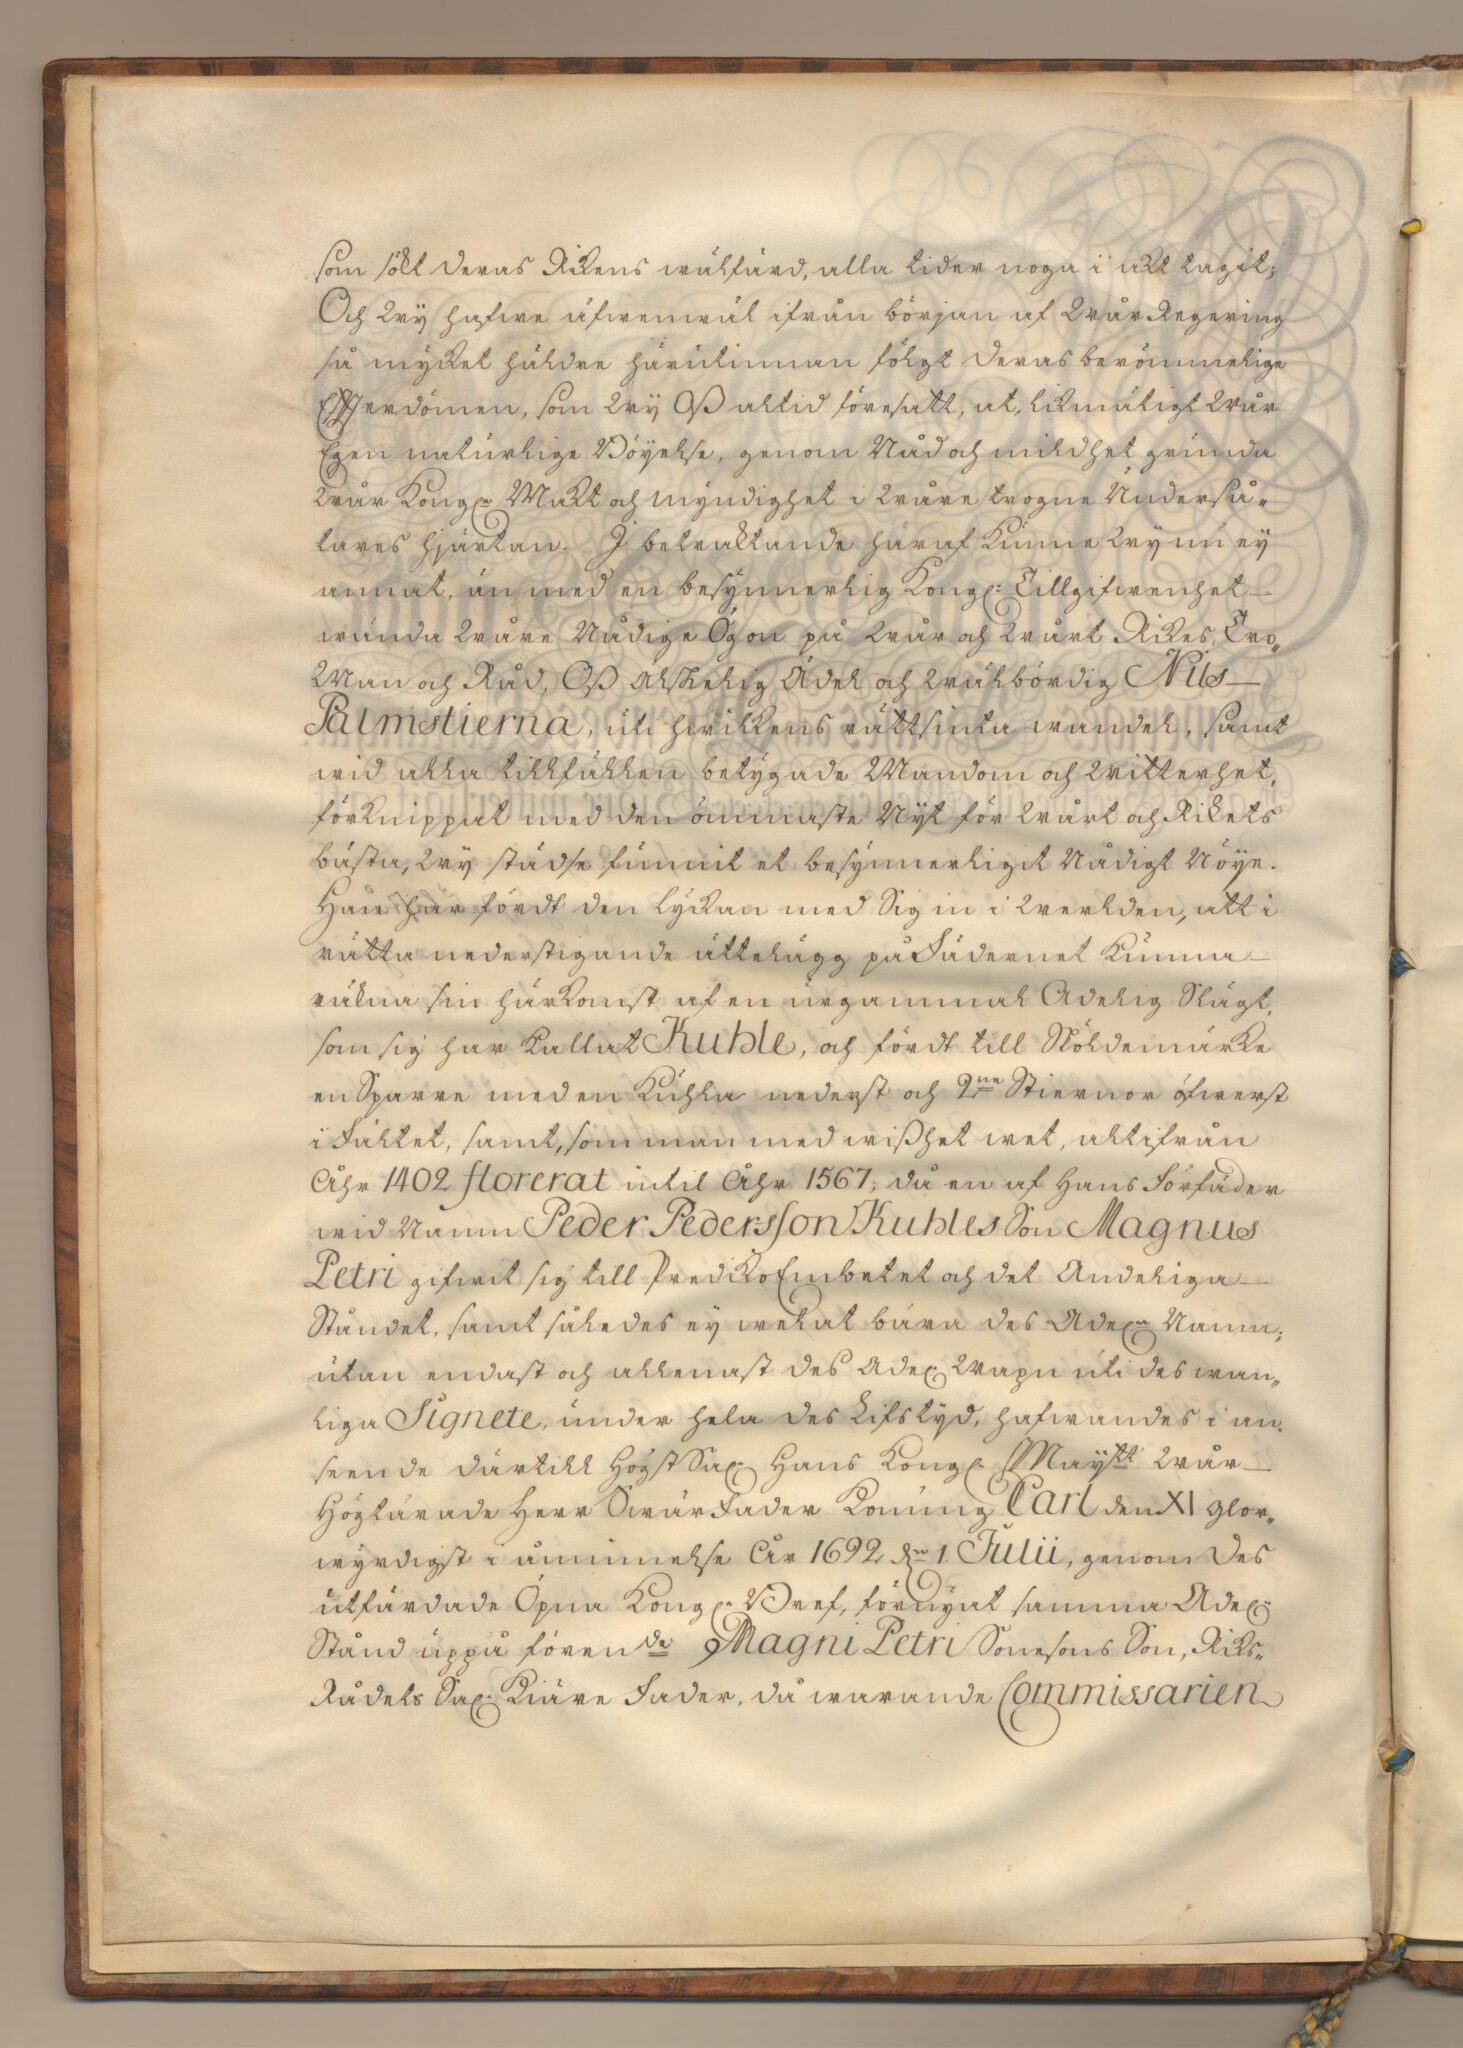 som sökt deras Rikens wälfärd, alla tider noga i akt tagit;
Och Wy hafwe äfwenwäl ifrån början af Wår Regering
så mycket häldre härutinnan fölgt deras berömmelige
Efterdömen, som Wy Oß altid föresatt, at, likmätigt Wår
Egen naturlige Böyelse, genom Nåd och mildhet grunda
Wår Kongl: Makt och myndighet i Wåre trogne Underså„
tares hjärtan. I betraktande häraf kunne Wy nu ey
annat, än med en besynnerlig Kongl: Tillgifwenhet
wända Wåre Nådige Ögon på Wår och Wårt Rikes, Tro„
Man och Råd, Oß älskelig Ädel och Wälbördig Nils
Palmstierna, uti hwilkens rättsinta wandel, samt
wid alla tillfällen betygade Mandom och Witterhet,
förknippat med den ömmaste Nyt för Wårt och Rikets
bästa, Wy städse funnit et besynnerligit Nådigt Nöye.
Han har fördt den lyckan med Sig in i Werlden, att i
rätta nederstigande ättelägg på Fädernet kunna
räkna sin härkomst af en urgammal Adelig Slägt,
som sig har kallat Kuhle, och fördt till Sköldemärke
en Sparre med en Kuhla nederst och 2ne Stiernor öfwerst
i Fältet, samt, som man med wißhet wet, alt ifrån
Åhr 1402 florerat intil Åhr 1567; då en af Hans Förfäder
wid Namn Peder Pedersson Kuhles Son Magnus
Petri gifwit sig till PredikoEmbetet och det Andeliga
Ståndet, samt således ey welat bära des Adel: Namn;
utan endast och allenast des Adel: Wapn uti des wan„
liga Signete, under hela des Lifstyd, hafwandes i an„
seende därtill Högst Sal: Hans Kongl: Maytt Wår
Högtärade Herr SwärFader Konung Carl den XI glor„
wyrdigst i åminnelse År 1692 dn 1 Julii, genom des
utfärdade Öpna Kongl: Bref, förnyat samma Adel:
Stånd uppå förende Magni Petri Sonesons Son, Riks„
Rådets Sal: Kiäre Fader, då warande Commissarien